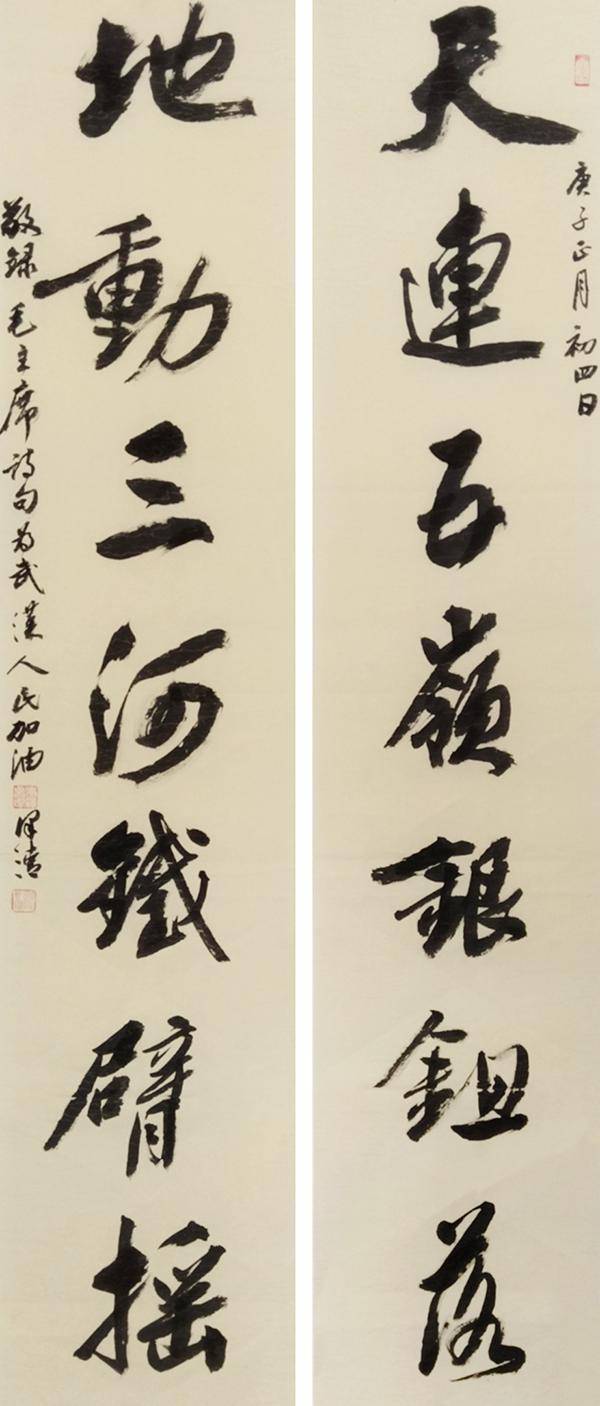 天連五嶺銀鉏落
庚子正月初四日
地動三河鐵臂搖
敬録毛主席詩句为武漢人民加油